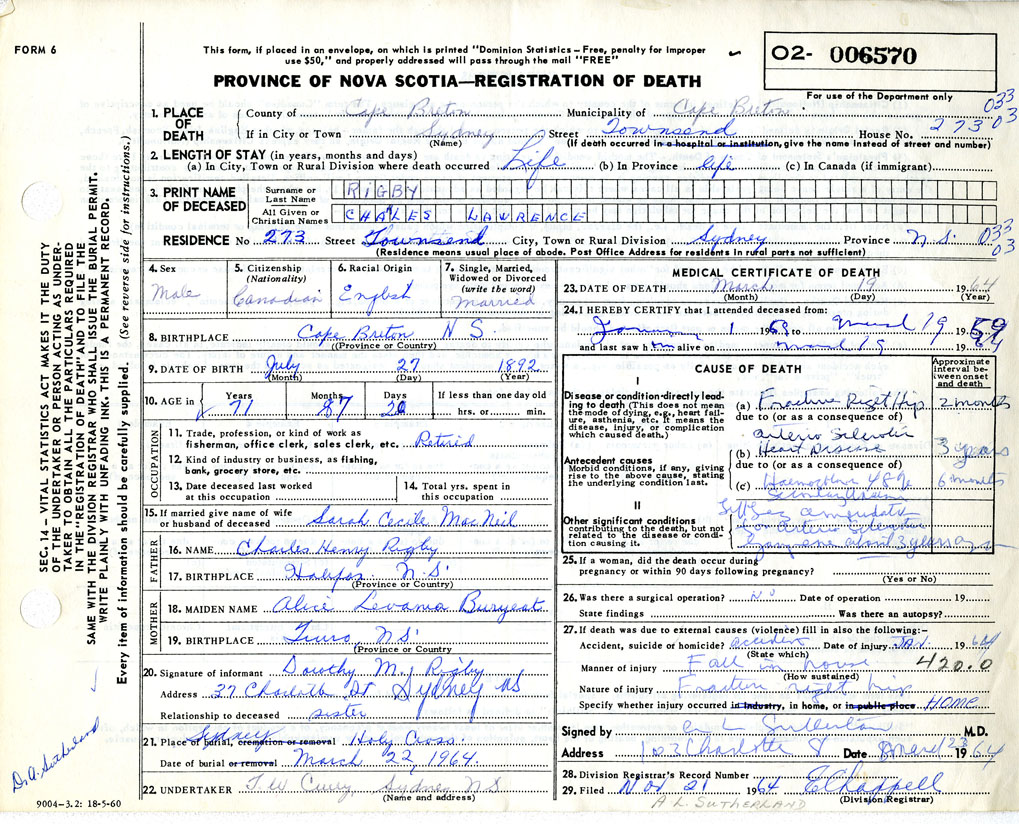 FORM 6
This form, if placed in an envelope, on which is printed "Dominion Statistics – Free, penalty for improper
use $50," and properly addressed will pass through the mail "FREE"
O2- 006570
For use of the Department only
PROVINCE OF NOVA SCOTIA—REGISTRATION OF DEATH
1. PLACE OF DEATH
County of Cape Breton Municipality of Cape Breton 033
If in City or Town Sydney Street Townsend House No. 273 03
(Name) (If death occurred in a hospital or institution, give the name instead of street and number)
2. LENGTH OF STAY (in years, months and days)
(a) In City, Town or Rural Division where death occurred Life (b) In Province life (c) In Canada (if immigrant)
3. PRINT NAME OF DECEASED
Surname or Last Name RIGBY
All Given or Christian Names CHALES LAWRENCE
RESIDENCE No 273 Street Townsend City, Town or Rural Division Sydney Province N.S. 033
03
(Residence means usual place of abode. Post Office Address for residents in rural parts not sufficient)
4. Sex Male
5. Citizenship (Nationality) Canadian
6. Racial Origin English
7. Single, Married, Widowed or Divorced (write the word) Married
8. BIRTHPLACE Cape Breton N S
(Province or Country)
9. DATE OF BIRTH July 27 1892
(Month) (Day) (Year)
10. AGE in Years 71 Months 7 Days 20 If less than one day old
hrs. or min.
OCCUPATION
11. Trade, profession, or kind of work as
fisherman, office clerk, sales clerk, etc. Retired
12. Kind of industry or business, as fishing,
bank, grocery store, etc.
13. Date deceased last worked
at this occupation
14. Total yrs. spent in
this occupation
15. If married give name of wife
or husband of deceased Sarah Cecile MacNeil
FATHER
16. NAME Charles Henry Rigby
17. BIRTHPLACE Halifax N.S.
(Province or Country)
MOTHER
18. MAIDEN NAME Alice
19. BIRTHPLACE Truro, N.S.
(Province or Country)
20. Signature of informant Dorothy M. Rigby
Address 37 Charlotte St Sydney NS
Relationship to deceased sister
21. Place of burial, cremation or removal Sydney Holy Cross
Date of burial or removal March 22, 1964.
22. UNDERTAKER T W Curry Sydney N.S
(Name and address)
MEDICAL CERTIFICATE OF DEATH
23. DATE OF DEATH March 19 1964
(Month) (Day) (Year)
24. I HEREBY CERTIFY that I attended deceased from:
1 19 to March 19 19 59
and last saw him alive on March 19 19 64
CAUSE OF DEATH
Approximate interval between onset and death
I
Disease or condition directly leading to death (This does not mean the mode of dying, e.g., heart failure, asthenia, etc. It means the disease, injury, or complication which caused death.)
(a) Fracture Right Hip 2 months
due to (or as a consequence of)
Arterio Sclerotic
(b) Heart Disease 3 years
due to (or as a consequence of)
Antecedent causes
Morbid conditions, if any, giving rise to the above cause, stating the underlying condition last.
(c) 48% 6 months
Secondary
II
Other significant conditions contributing to the death, but not related to the disease or condition causing it.
Left leg amputated
for Arterio Sclerotic
about 3 years ago
25. If a woman, did the death occur during
pregnancy or within 90 days following pregnancy?
(Yes or No)
26. Was there a surgical operation? NO Date of operation 19
State findings Was there an autopsy?
27. If death was due to external causes (violence) fill in also the following:–
Accident, suicide or homicide? accident Date of injury JAN. 1964
(State which)
Manner of injury Fall in house 420.0
(How sustained)
Nature of injury Fracture right hip
Specify whether injury occurred in industry, in home, or in public place HOME
Signed by M.D.
Address 103 Charlotte St Date March 23 1964
28. Division Registrar's Record Number
29. Filed Nov. 21 1964 E Chappell
(Division Registrar)
A L. SUTHERLAND
SEC. 14 – VITAL STATISTICS ACT MAKES IT THE DUTY
OF THE UNDERTAKER OR PERSON ACTING AS UNDER-
TAKER TO OBTAIN ALL THE PARTICULARS REQUIRED
IN THE "REGISTRATION OF DEATH" AND TO FILE THE
SAME WITH THE DIVISION REGISTRAR WHO SHALL ISSUE THE BURIAL PERMIT.
WRITE PLAINLY WITH UNFADING INK. THIS IS A PERMANENT RECORD.
Every item of information should be carefully supplied. (See reverse side for instructions.)
Dr A. Sutherland
9004-3.2: 18-5-60